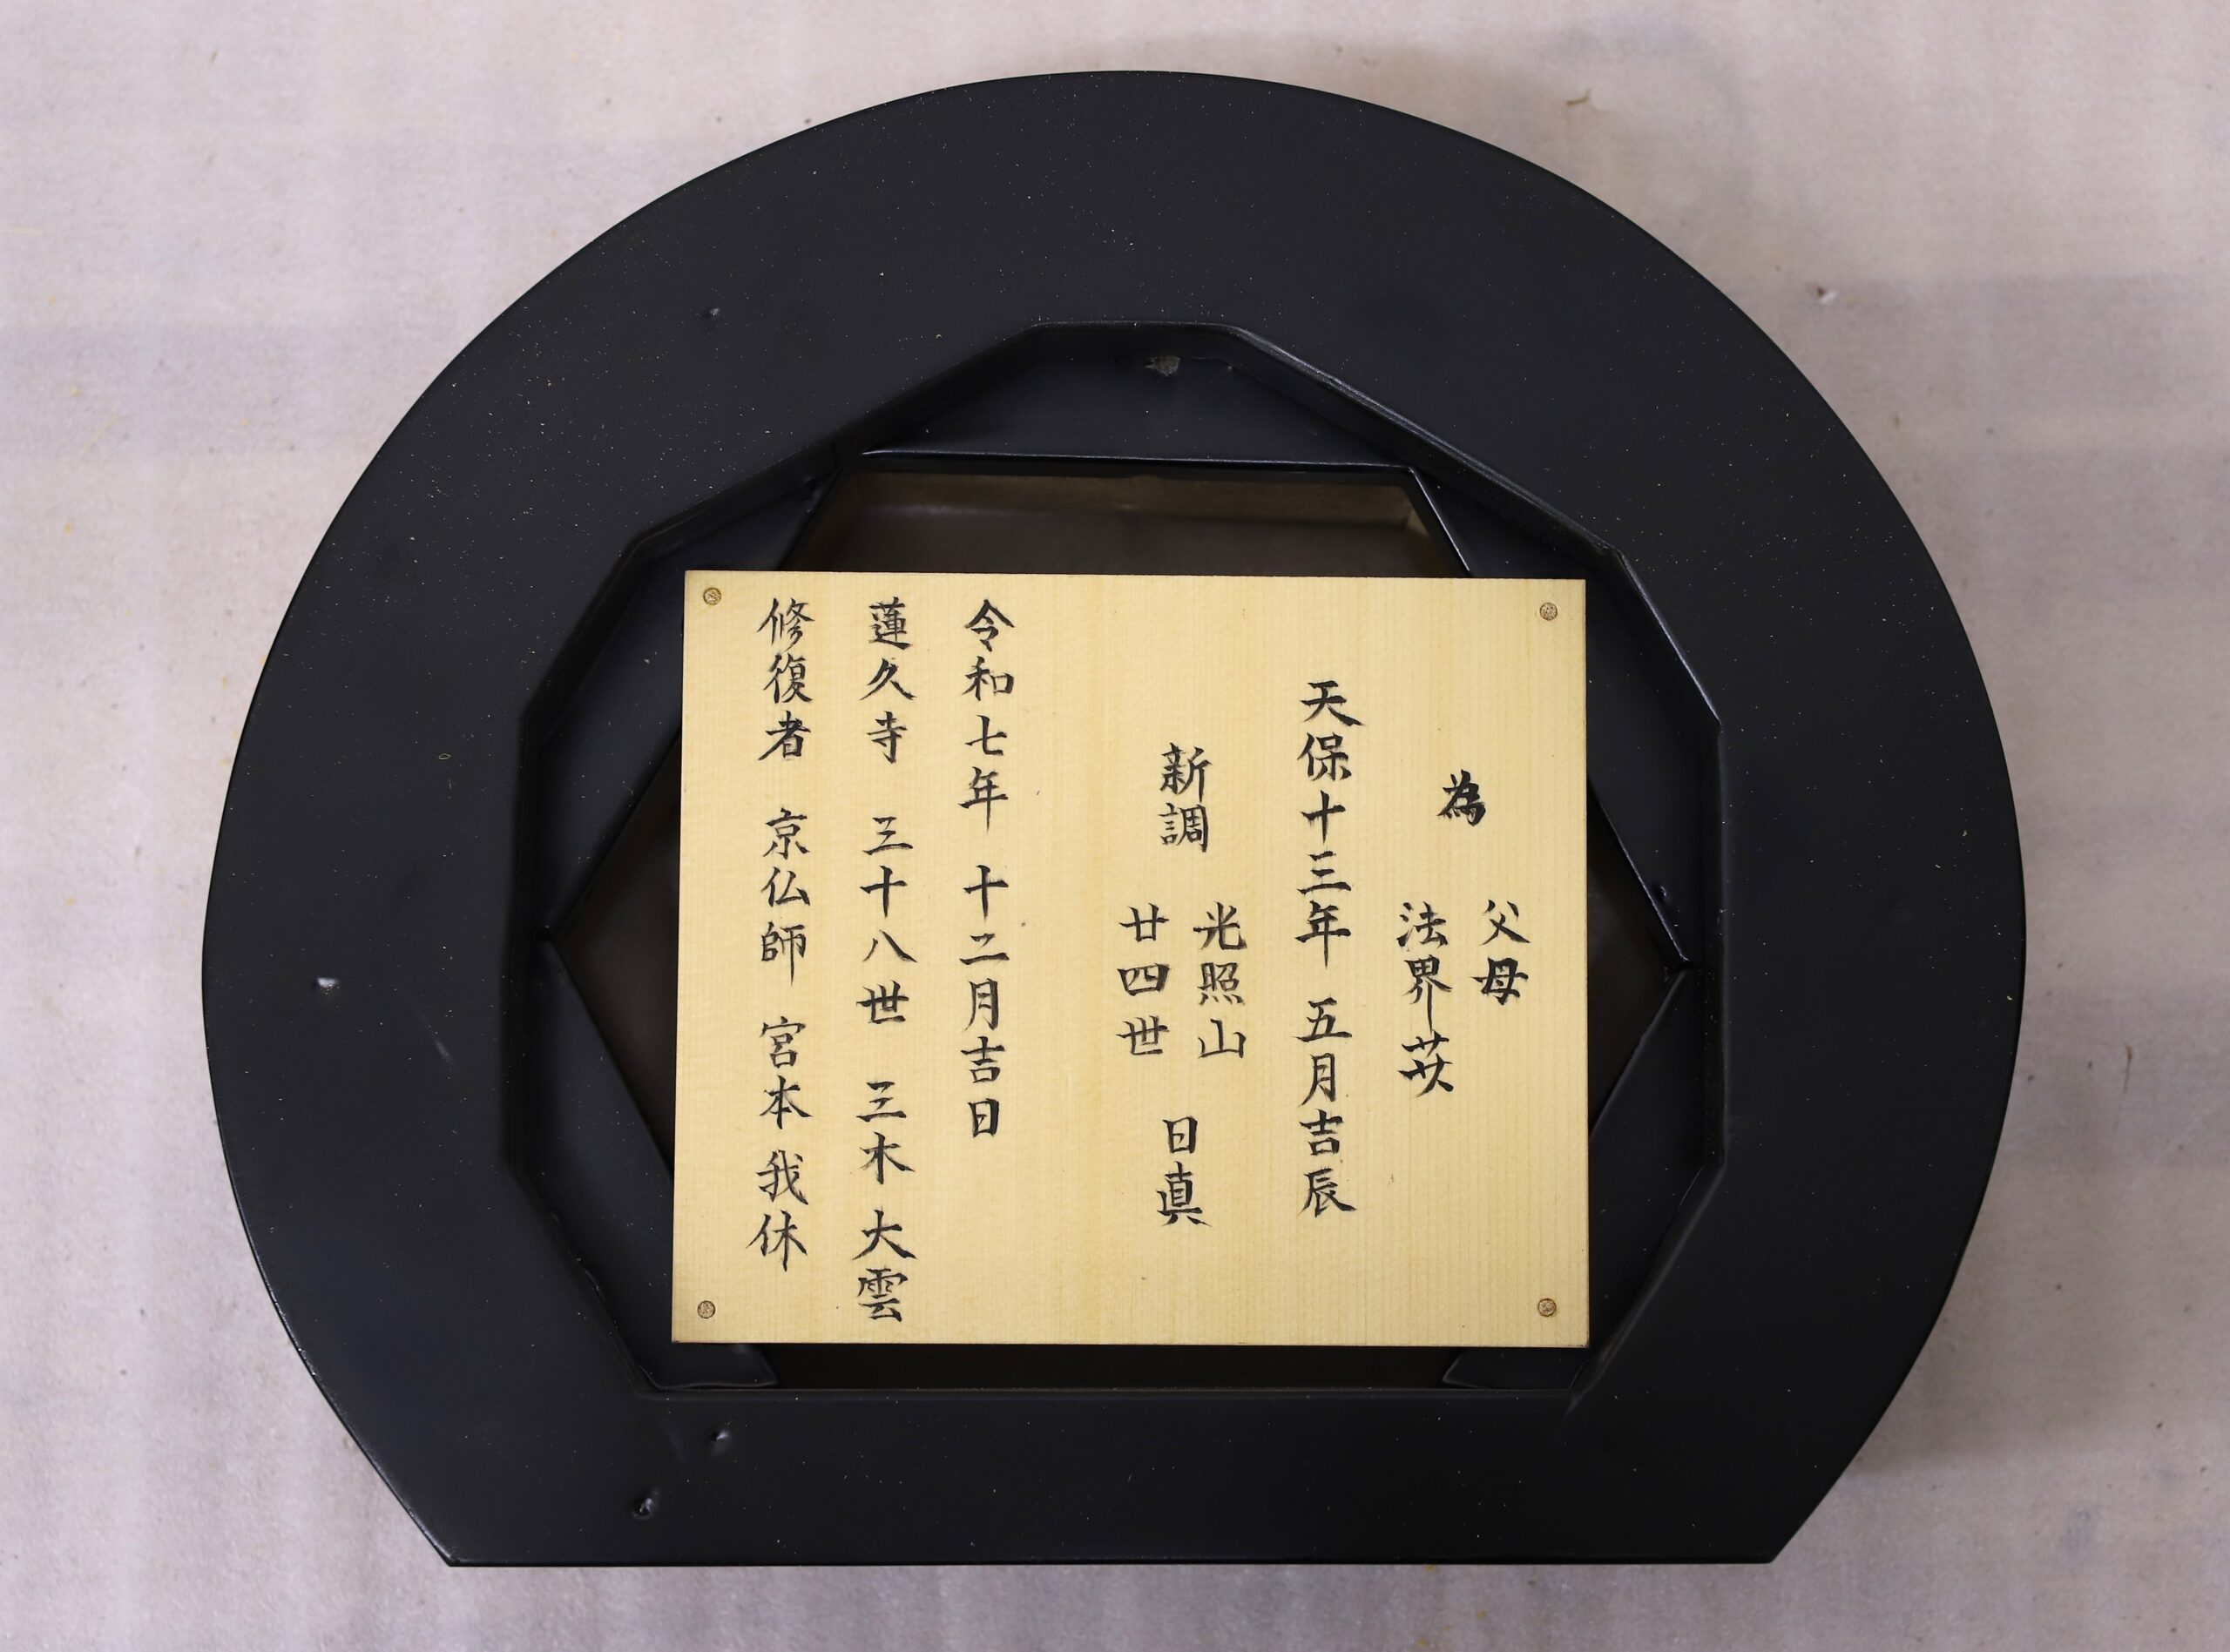 為
父母
法界
天保十三年 五月吉辰
新調
光照山
廿四世
日真
令和七年 十二月吉日
蓮久寺 三十八世 三木大雲
修復者 京仏師 宮本我休